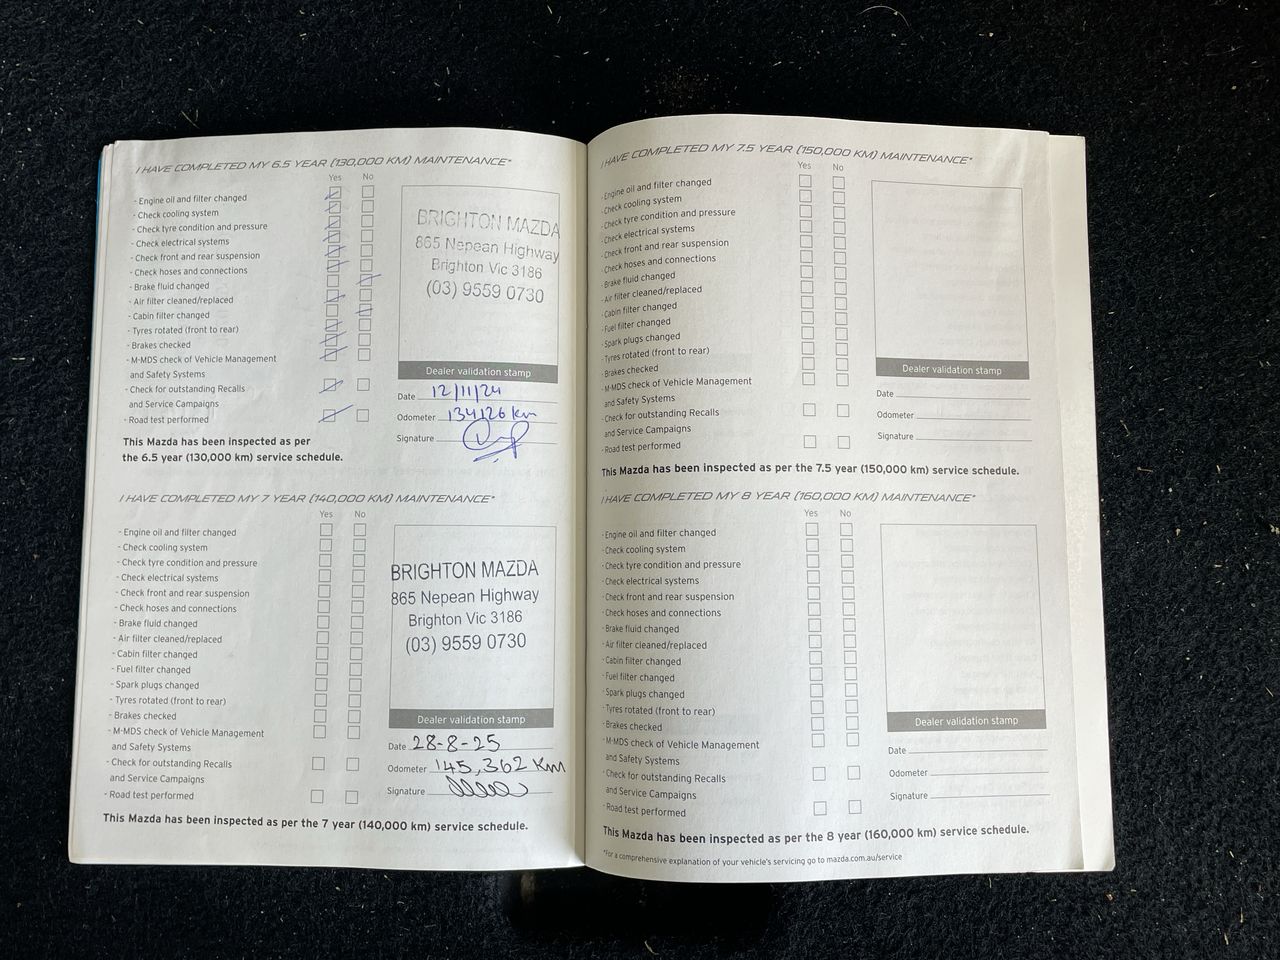 I HAVE COMPLETED MY 6.5 YEAR (130,000 KM) MAINTENANCE*
Yes No
- Engine oil and filter changed
- Check cooling system
- Check tyre condition and pressure
- Check electrical systems
- Check front and rear suspension
- Check hoses and connections
- Brake fluid changed
- Air filter cleaned/replaced
- Cabin filter changed
- Tyres rotated (front to rear)
- Brakes checked
- M-MDS check of Vehicle Management
and Safety Systems
- Check for outstanding Recalls
and Service Campaigns
- Road test performed
This Mazda has been inspected as per
the 6.5 year (130,000 km) service schedule.
BRIGHTON MAZDA
865 Nepean Highway
Brighton Vic 3186
(03) 9559 0730
Dealer validation stamp
Date 12/11/24
Odometer 134126 km
Signature
I HAVE COMPLETED MY 7 YEAR (140,000 KM) MAINTENANCE*
Yes No
- Engine oil and filter changed
- Check cooling system
- Check tyre condition and pressure
- Check electrical systems
- Check front and rear suspension
- Check hoses and connections
- Brake fluid changed
- Air filter cleaned/replaced
- Cabin filter changed
- Fuel filter changed
- Spark plugs changed
- Tyres rotated (front to rear)
- Brakes checked
- M-MDS check of Vehicle Management
and Safety Systems
- Check for outstanding Recalls
and Service Campaigns
- Road test performed
This Mazda has been inspected as per the 7 year (140,000 km) service schedule.
BRIGHTON MAZDA
865 Nepean Highway
Brighton Vic 3186
(03) 9559 0730
Dealer validation stamp
Date 28-8-25
Odometer 145,362 Km
Signature
I HAVE COMPLETED MY 7.5 YEAR (150,000 KM) MAINTENANCE*
Yes No
- Engine oil and filter changed
- Check cooling system
- Check tyre condition and pressure
- Check electrical systems
- Check front and rear suspension
- Check hoses and connections
- Brake fluid changed
- Air filter cleaned/replaced
- Cabin filter changed
- Fuel filter changed
- Spark plugs changed
- Tyres rotated (front to rear)
- Brakes checked
- M-MDS check of Vehicle Management
and Safety Systems
- Check for outstanding Recalls
and Service Campaigns
- Road test performed
This Mazda has been inspected as per the 7.5 year (150,000 km) service schedule.
Dealer validation stamp
Date
Odometer
Signature
I HAVE COMPLETED MY 8 YEAR (160,000 KM) MAINTENANCE*
Yes No
- Engine oil and filter changed
- Check cooling system
- Check tyre condition and pressure
- Check electrical systems
- Check front and rear suspension
- Check hoses and connections
- Brake fluid changed
- Air filter cleaned/replaced
- Cabin filter changed
- Fuel filter changed
- Spark plugs changed
- Tyres rotated (front to rear)
- Brakes checked
- M-MDS check of Vehicle Management
and Safety Systems
- Check for outstanding Recalls
and Service Campaigns
- Road test performed
This Mazda has been inspected as per the 8 year (160,000 km) service schedule.
*For a comprehensive explanation of your vehicle's servicing go to mazda.com.au/service
Dealer validation stamp
Date
Odometer
Signature